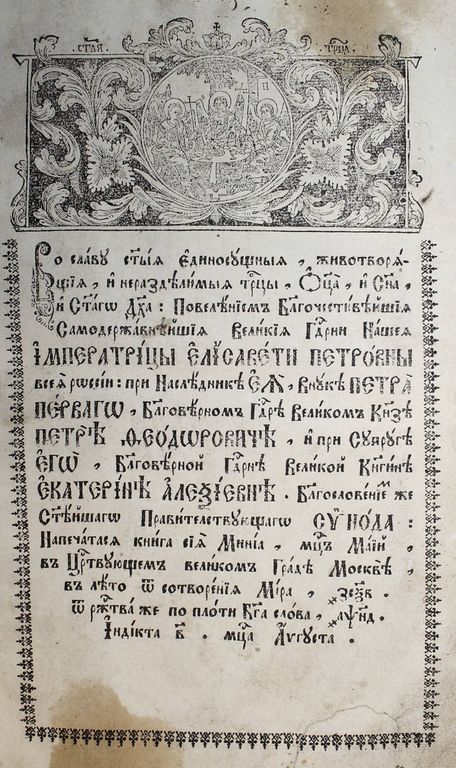 СТ҃АѦ. ТРⷪ҇ЦА.
Во славꙋ ст҃ы́ѧ є҆диносꙋ́щныѧ, животворѧ́-
щїѧ, и҆ нераздѣли́мыѧ трⷪ҇цы, Ѻ҆ц҃а̀, и҆ сн҃а,
и҆ ст҃а́гѡ дх҃а: Повелѣ́нїемъ Бл҃гочести́вѣйшїѧ
Самодержа́внѣйшїѧ Вели́кїѧ Гдⷭ҇рни На́шеѧ
І҆МПЕРАТРИ́ЦЫ Е҆ЛІСАВЕ́ТИ ПЕТРО́ВНЫ
всеѧ̀ рѡссі́и: при Наслѣ́дникѣ Е҆Ѧ̀, внꙋ́кѣ ПЕТРА̀
ПЕ́РВАГѠ, Бл҃говѣ́рномъ Гдⷭ҇рѣ Вели́комъ Кн҃зѣ
ПЕТРѢ̀ Ѳ҆ЕО́ДѠРОВИЧѢ, и҆ при Сꙋпрꙋ́гѣ
Е҆ГѠ̀, Бл҃говѣ́рной Гдⷭ҇рнѣ Вели́кой Кн҃ги́нѣ
Е҆КАТЕРИ́НѢ А҆ЛЕѮІ́ЕВНѢ. Благослове́нїемъ же
Ст҃ѣ́йшагѡ Прави́тельствꙋющагѡ СѴНО́ДА:
Напеча́тасѧ кни́га сїѧ̀ Мине́а, мцⷭ҇ъ Ма́їй,
въ Црⷭ҇твꙋющемъ вели́комъ Гра́дѣ Москвѣ̀,
въ лѣ́то ѿ сотворе́нїѧ Мі́ра, ҂зс҃ѯв.
ѿ рж҃тва̀ же по пло́ти Бг҃а сло́ва, ҂аѱн҃д.
І҆ндї́кта в҃. мцⷭ҇а А҆́ѵгꙋста.